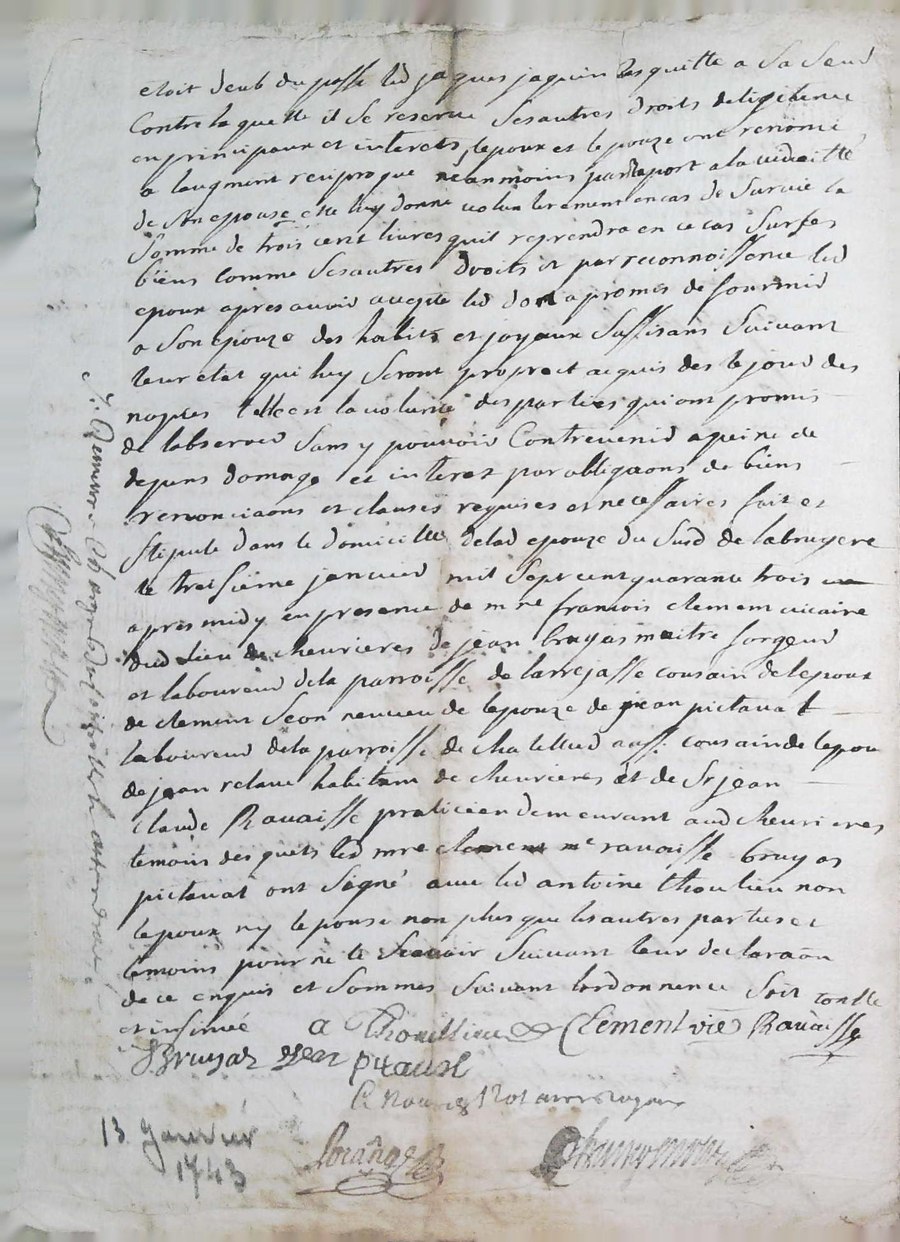 etoit deub du passé led jaques jaquin les quitte a Sa Seud
Contre laquelle il se reserve Ses autres droits de legitime
en principaux et interets, lepoux et lepouze ont renoncé
a laugment reciproque neanmoins par raport a la viduitté
de Son epouse elle luy donne volontairement en cas de Survie la
Somme de trois cent livres quil reprendra en ce cas Sur Ses
biens comme Ses autres droits et par reconnoissence led
epoux apres avoir accepté led don a promis de fournir
a Son epouze des habits et joyaux Suffisans Suivant
leur etat qui luy Seront propre et acquis des le jour des
noples telle est la volunté des parties qui ont promis
de lobserver Sans y pouvoir Contrevenir a peine de
depens domage et interest par obligaons de biens
renonciaons et clauses requises et necessaires fait et
Stipulé dans le domicille delad epouze du Susd de labruyere
le treisiéme janvier mil Sept cent quarante trois
apres midy en presence de mre francois clement vicaire
dud Lieu de cheurieres de jean bruyas maitre forgeur
et laboureur de la parroisse de larrajasse cousain de lepoux
de clement Seon neuveu de lepouze de jean pictavat
laboureur de la parroisse de chatellud aussi cousain de lepou
de jean relave habitant de cheurieres et de Sr jean
claude Ravaisse praticien demeurant aud cheurieres
temoins desquels led mre clement me ravaisse bruyas
pictavat ont Signé avec led antoine thoulieu non
lepoux ny lepouse non plus que les autres parties et
temoins pour ne le Scavoir Suivant leur declaraon
de ce enquis et Sommes Suivant lordonnence Soit contlle
et insinué a Thoullieu Clement vic Ravaisse
J Bruyas jean Pitavat
Notaire royal
13 Janvier
1743